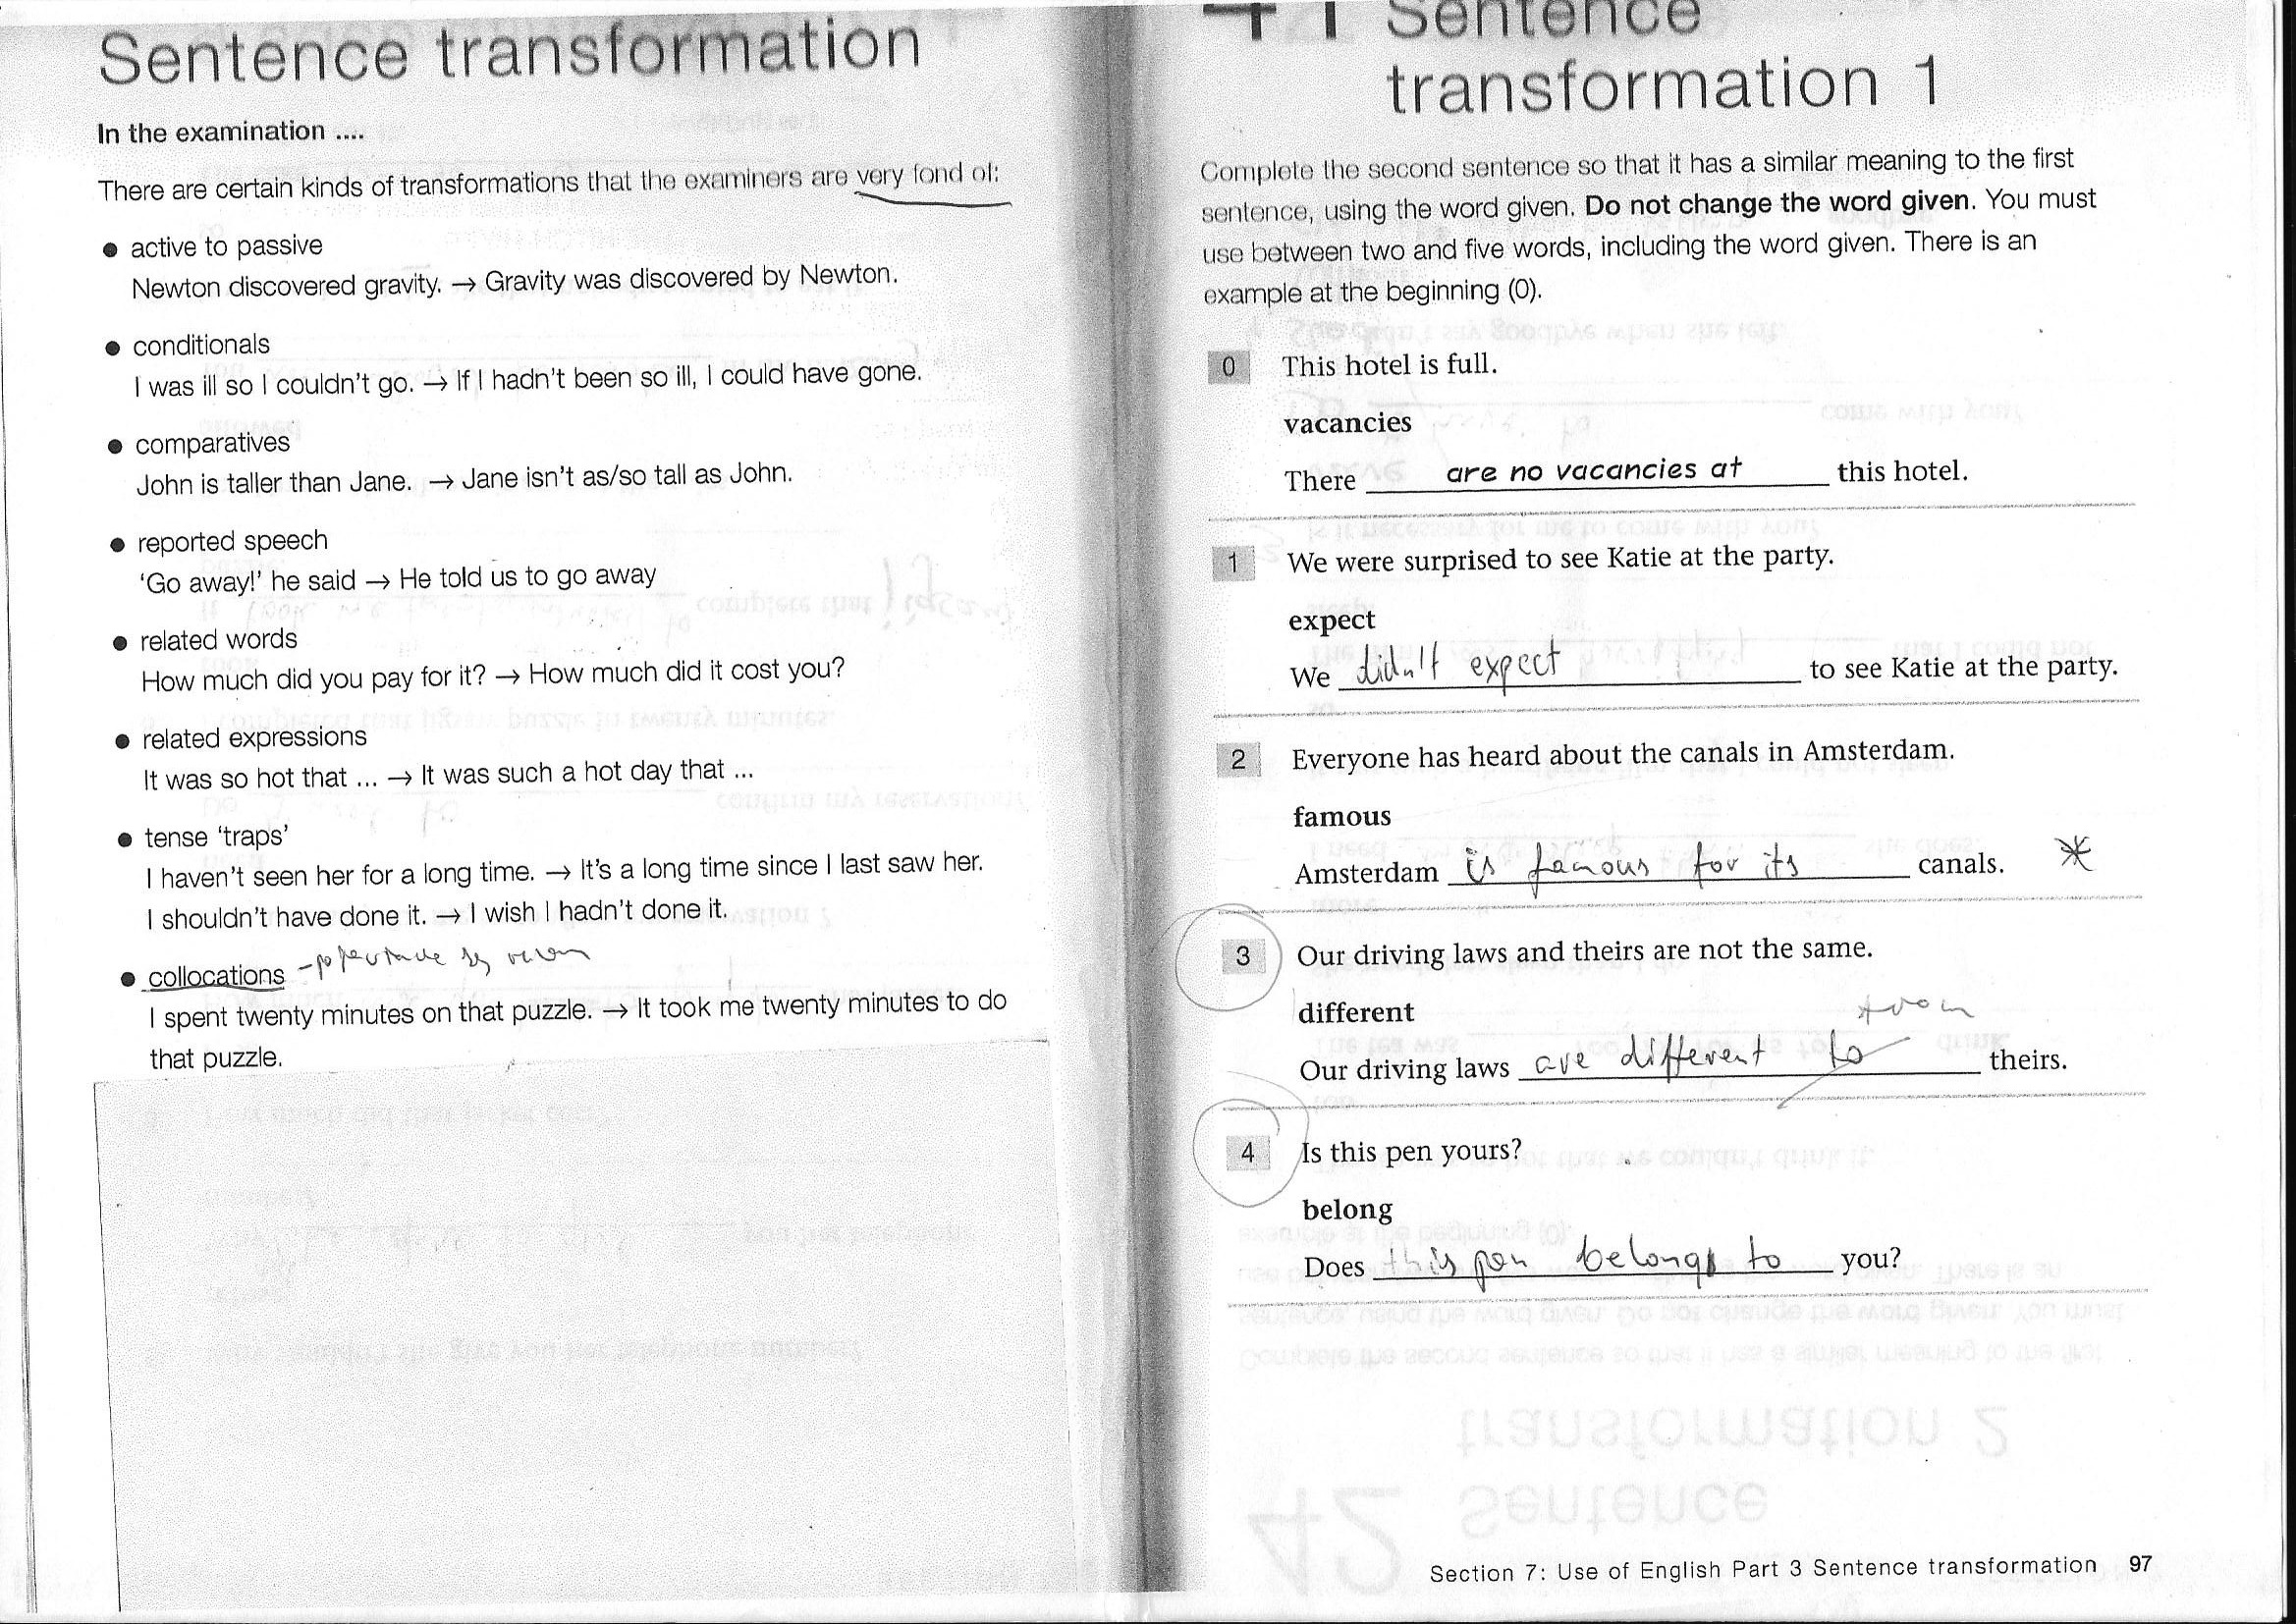 Sentence transformation
In the examination ....
There are certain kinds of transformations that the examiners are very fond of:
● active to passive
Newton discovered gravity. → Gravity was discovered by Newton.
● conditionals
I was ill so I couldn't go. → If I hadn't been so ill, I could have gone.
● comparatives
John is taller than Jane. → Jane isn't as/so tall as John.
● reported speech
'Go away!' he said → He told us to go away
● related words
How much did you pay for it? → How much did it cost you?
● related expressions
It was so hot that ... → It was such a hot day that ...
● tense 'traps'
I haven't seen her for a long time. → It's a long time since I last saw her.
I shouldn't have done it. → I wish I hadn't done it.
● collocations
I spent twenty minutes on that puzzle. → It took me twenty minutes to do
that puzzle.
41 Sentence
transformation 1
Complete the second sentence so that it has a similar meaning to the first
sentence, using the word given. Do not change the word given. You must
use between two and five words, including the word given. There is an
example at the beginning (0).
0 This hotel is full.
vacancies
There are no vacancies at this hotel.
1 We were surprised to see Katie at the party.
expect
We didn't expect to see Katie at the party.
2 Everyone has heard about the canals in Amsterdam.
famous
Amsterdam is famous for its canals. *
3 Our driving laws and theirs are not the same.
different
from
Our driving laws are different to theirs.
4 Is this pen yours?
belong
Does this pen belong to you?
Section 7: Use of English Part 3 Sentence transformation 97